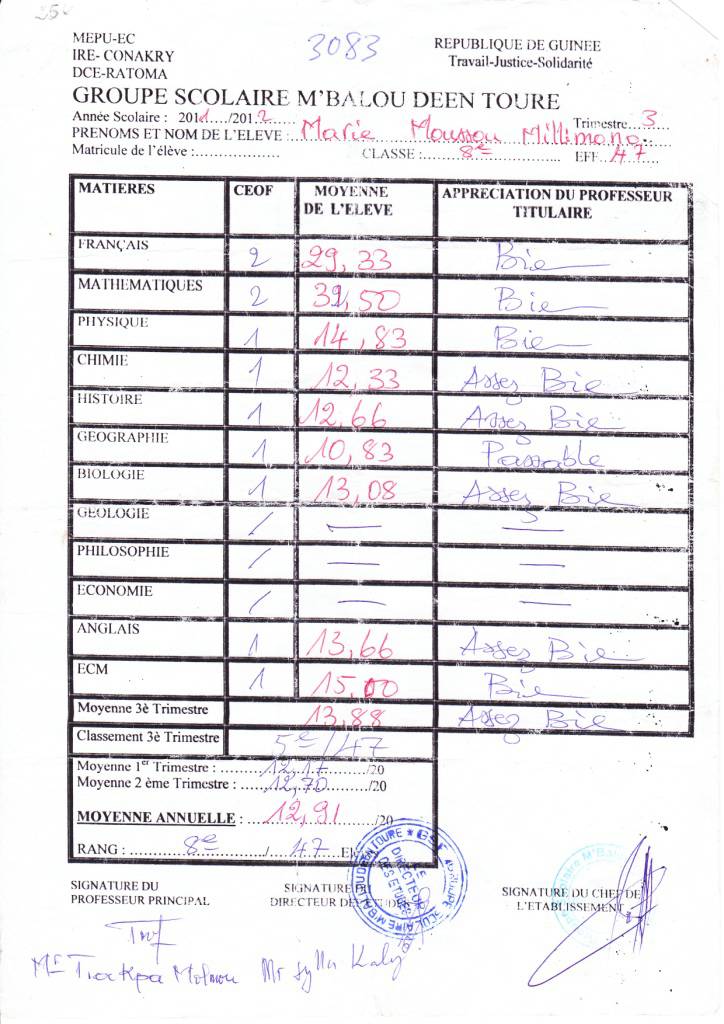 25
MEPU-EC
IRE- CONAKRY
DCE-RATOMA
3083
REPUBLIQUE DE GUINEE
Travail-Justice-Solidarité
GROUPE SCOLAIRE M'BALOU DEEN TOURE
Année Scolaire : 2011..../2012........ Trimestre...3...
PRENOMS ET NOM DE L'ELEVE :..Marie Moussou Millimono..
Matricule de l'élève :.................. CLASSE :.........8è................ EFF...47...
MATIERES CEOF MOYENNE DE L'ELEVE APPRECIATION DU PROFESSEUR TITULAIRE
FRANÇAIS 2 29,33 Bie
MATHEMATIQUES 2 39,50 Bie
PHYSIQUE 1 14,83 Bie
CHIMIE 1 12,33 Assez Bie
HISTOIRE 1 12,66 Assez Bie
GEOGRAPHIE 1 10,83 Passable
BIOLOGIE 1 13,08 Assez Bie
GEOLOGIE / — —
PHILOSOPHIE / — —
ECONOMIE / — —
ANGLAIS 1 13,66 Assez Bie
ECM 1 15,00 Bie
Moyenne 3è Trimestre 13,88 Assez Bie
Classement 3è Trimestre 5e/47
Moyenne 1er Trimestre : ........12,17......../20
Moyenne 2 ème Trimestre : ........12,70......../20
MOYENNE ANNUELLE : ....12,91........./20
RANG : .........8è........./....47....
SIGNATURE DU
PROFESSEUR PRINCIPAL
SIGNATURE DU
DIRECTEUR DES ETUDES
SIGNATURE DU CHEF DE
L'ETABLISSEMENT
LE DIRECTEUR DES ETUDES
Mr Tiakpa Mr Sylla Kaly